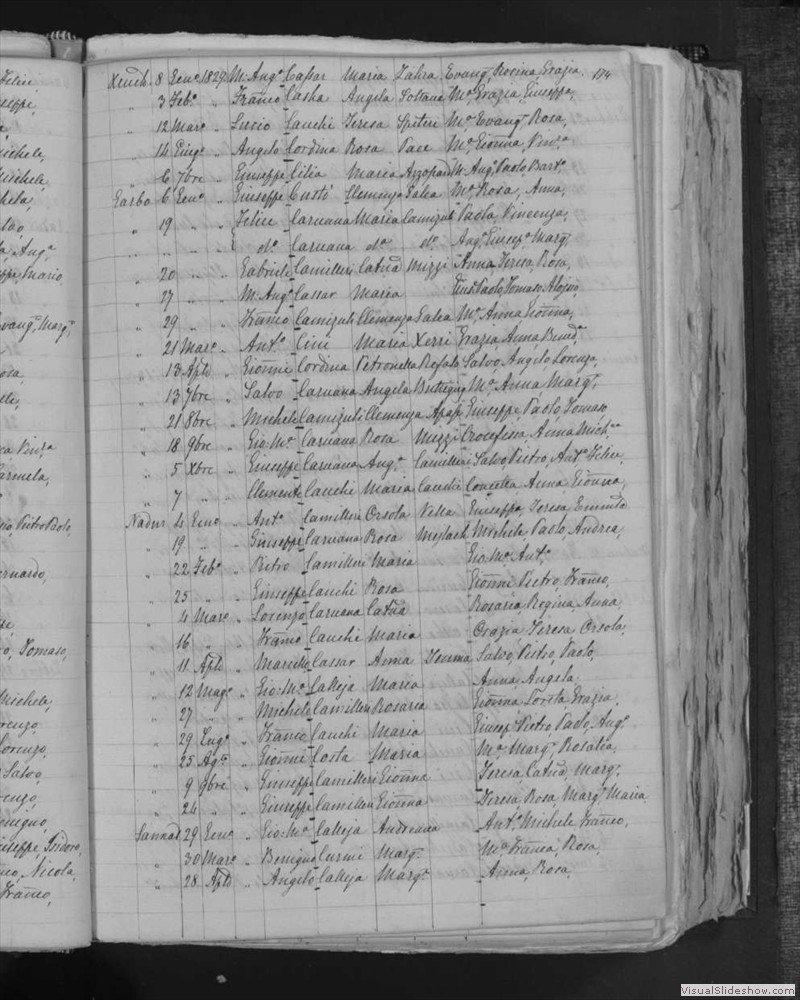 Xeuch. 8 Genº 1829 M. Angº Cassar Maria Zahra Evangª, Rosina, Grazia, 174
" 3 Febº " Franco Casha Angela Soltana Mª, Grazia, Giuseppa,
" 12 Marº " Lucio Cauchi Teresa Spiteri Mª, Evangª, Rosa,
" 14 Giugº " Angelo Cordina Rosa Pace Mª, Gionna, Vinª
" 6 7bre " Giuseppe Cilia Maria Azzopardi M. Angº, Paolo, Bartº
Garbo 6 Genº " Giuseppe Custó Clemenza Galea Mª, Rosa, Anna,
" 19 " " Felice Caruana Maria Camizuli Paola, Vincenza,
" " " dº Caruana dª dº Angª, Giusepª, Margª
" 20 " " Gabriele Camilleri Catna Mizzi Anna, Teresa, Rosa,
" 27 " " M. Angº Cassar Maria Paolo, Tomaso, Aloisio,
" 29 " " Franco Camizuli Clemenza Galea Mª, Anna, Gionna,
" 21 Marº " Antº Cini Maria Xerri Grazia, Anna, Bened.ª
" 13 Aple " Gionni Cordina Petronella Rofalo Salvo, Angelo, Lorenzo,
" 13 7bre " Salvo Caruana Angela Buttigieg Mª, Anna, Margª,
" 21 8bre " Michele Camizuli Clemenza Apap Giuseppe, Paolo, Tomaso,
" 18 9bre " Gio: Mª Caruana Rosa Mizzi Crocefissa, Anna, Michª
" 5 Xbre " Giuseppe Caruana Angª Camilleri Salvo, Pietro, Antº, Felice,
" 7 " " Clemente Cauchi Maria Cauchi Concetta, Anna, Gionna,
Nadur 4 Genº " Antº Camilleri Orsola Vella Giuseppa, Teresa,
" 19 " " Giuseppe Caruana Rosa Mejlach Michele, Paolo, Andrea,
" 22 Febº " Pietro Camilleri Maria Gio: Mª, Antº,
" 25 " " Giuseppe Cauchi Rosa Gionni, Pietro, Franco,
" 4 Marº " Lorenzo Caruana Catna Rosaria, Regina, Anna,
" 16 " " Franco Cauchi Maria Grazia, Teresa, Orsola,
" 11 Aple " Marcello Cassar Anna Salvo, Pietro, Paolo,
" 12 Magº " Gio: Mª Calleja Maria Anna, Angela,
" 27 " " Michele Camilleri Rosaria Gionna, Grazia,
" 29 Lugº " Franco Cauchi Maria Giusepº, Pietro, Paolo, Angº
" 25 Agº " Gionni Costa Maria Mª, Margª, Rosalia,
" 9 9bre " Giuseppe Camilleri Gionna Teresa, Catna, Margª,
" 24 " " Giuseppe Camilleri Gionna Teresa, Rosa, Margª, Maria
Sannat 29 Genº " Gio: Mª Calleja Andreana Antº, Michele, Franco,
" 30 Marº " Benigno Curmi Margª Mª, Franca, Rosa,
" 28 Aple " Angelo Calleja Margª Anna, Rosa,
VisualSlideshow.com